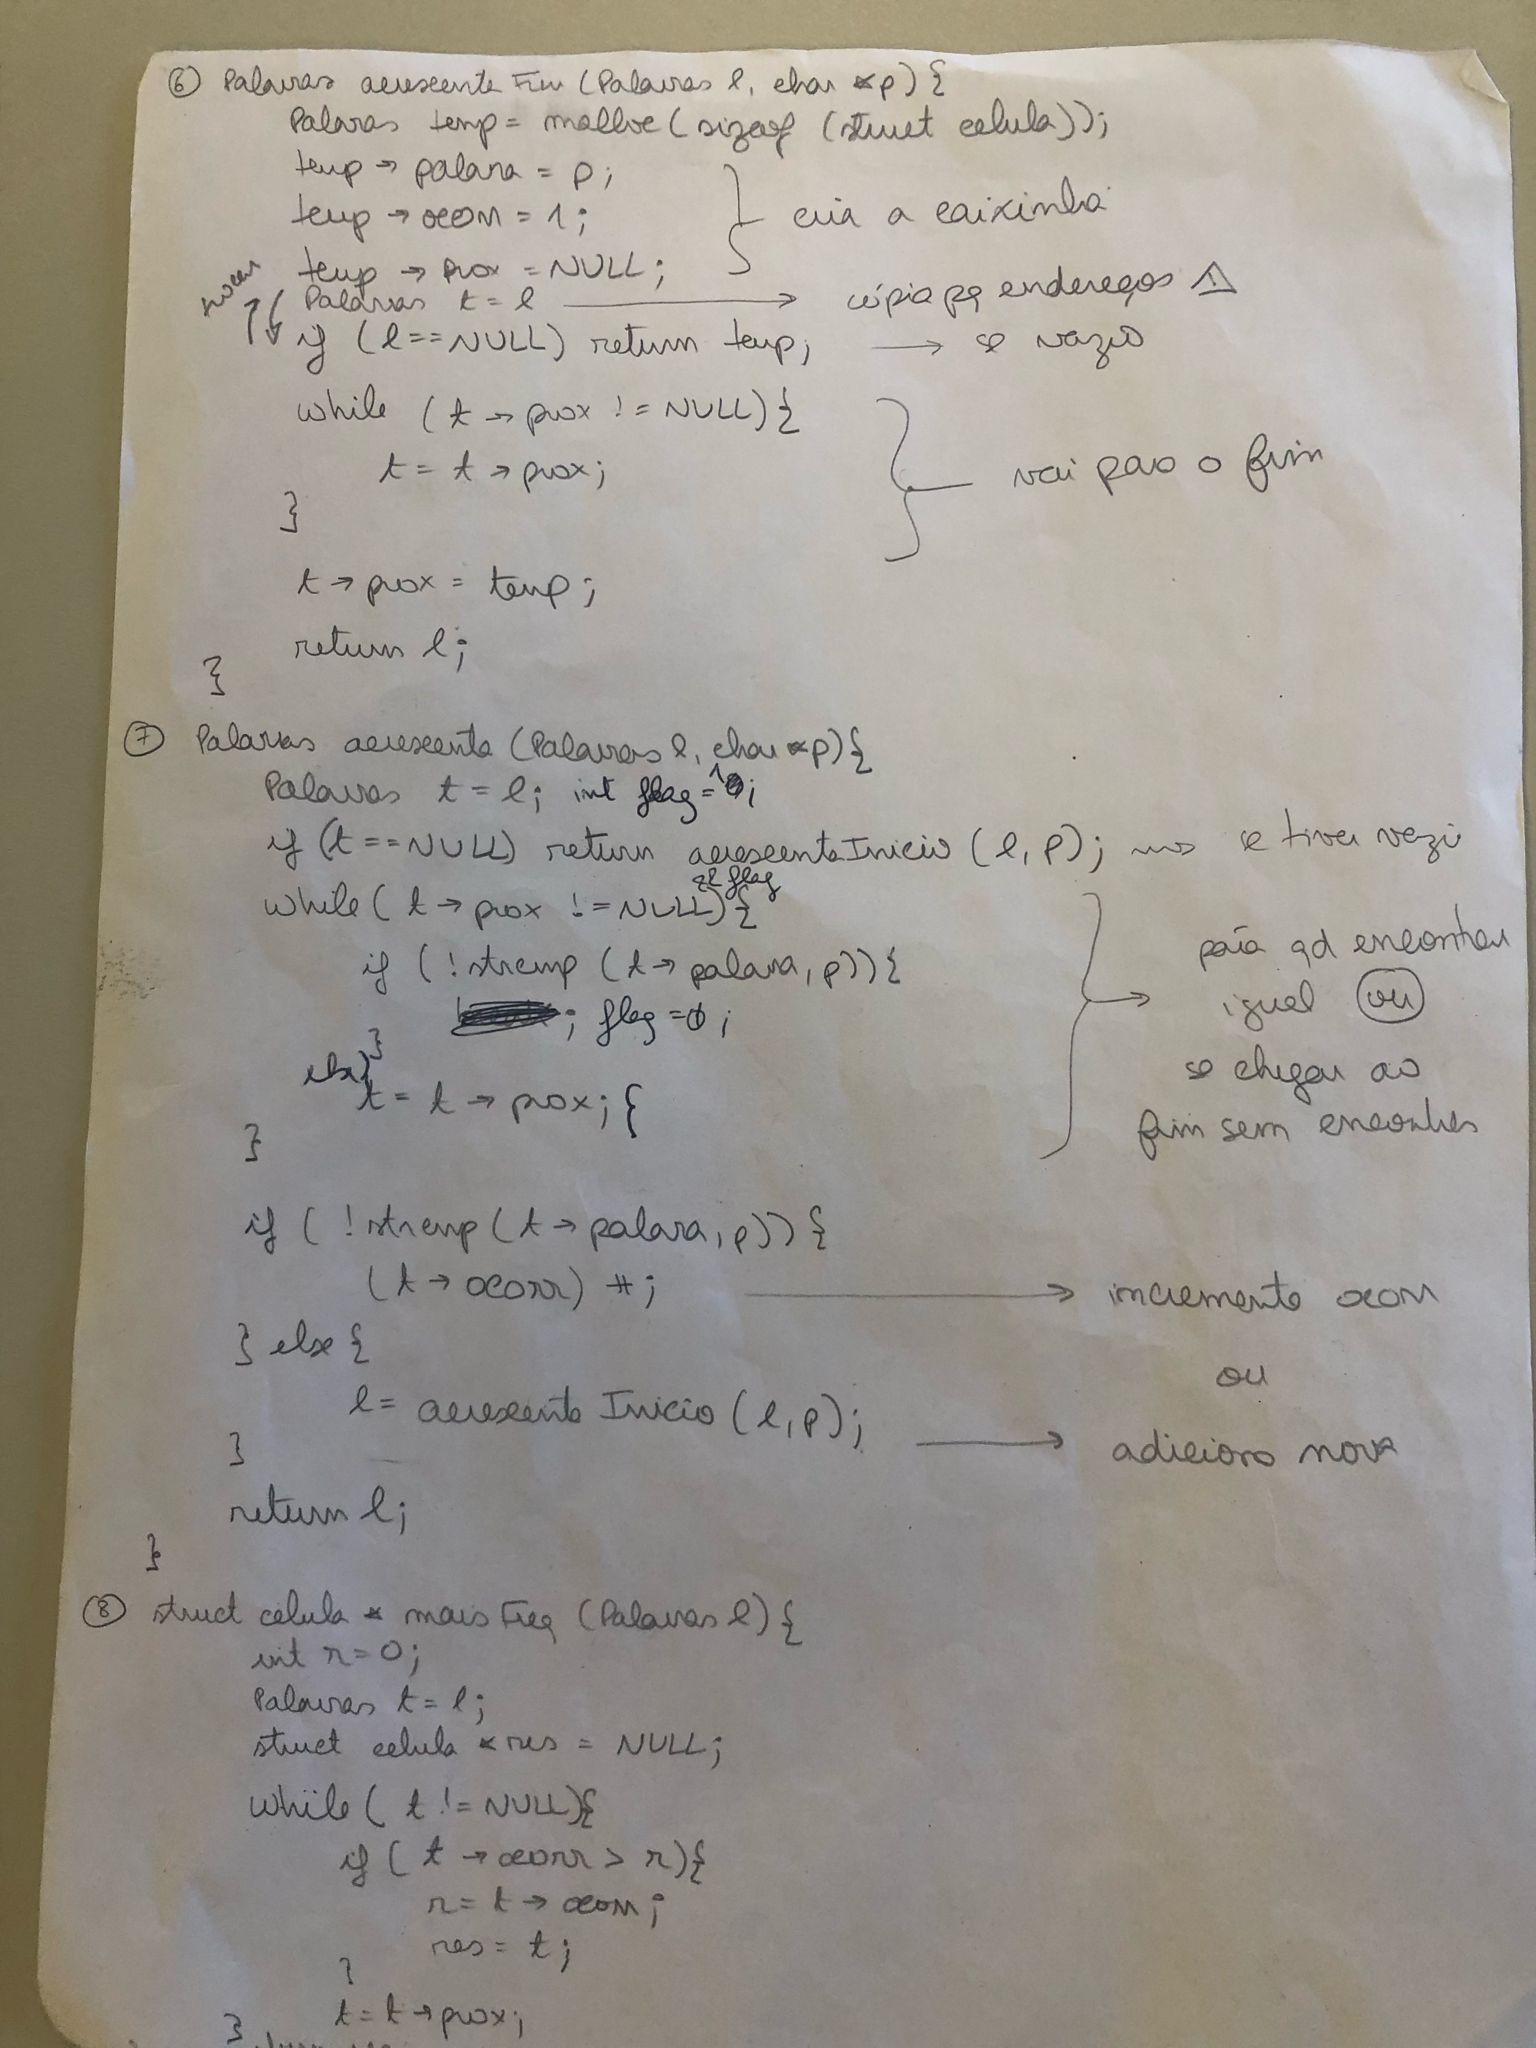 ⑥ Palavras acrescenta Fim (Palavras l, char *p) {
Palavras temp = malloc (sizeof (struct celula));
temp → palavra = p;
temp → ocorr = 1; } cria a caixinha
temp → prox = NULL;
trocar Palavras t = l → cópia pq endereços ⚠
if (l == NULL) return temp; → se vazio
while (t → prox != NULL) {
t = t → prox; } vai para o fim
}
t → prox = temp;
return l;
}
⑦ Palavras acrescenta (Palavras l, char *p) {
Palavras t = l; int flag = 1;
if (t == NULL) return acrescenta Inicio (l, p); se tiver vazi
while (t → prox != NULL && flag) {
if (!strcmp (t → palavra, p)) {
; flag = 0;
}
else }
t = t → prox; {
}
pára qd encontrar
igual ou
se chegar ao
fim sem encontrar
if (!strcmp (t → palavra, p)) {
(t → ocorr) ++; → incremento ocorr
} else { ou
l = acrescenta Inicio (l, p); → adiciono nova
}
return l;
}
⑧ struct celula * mais Freq (Palavras l) {
int r = 0;
Palavras t = l;
struct celula * res = NULL;
while (t != NULL) {
if (t → ocorr > r) {
r = t → ocorr;
res = t;
}
t = t → prox;
}